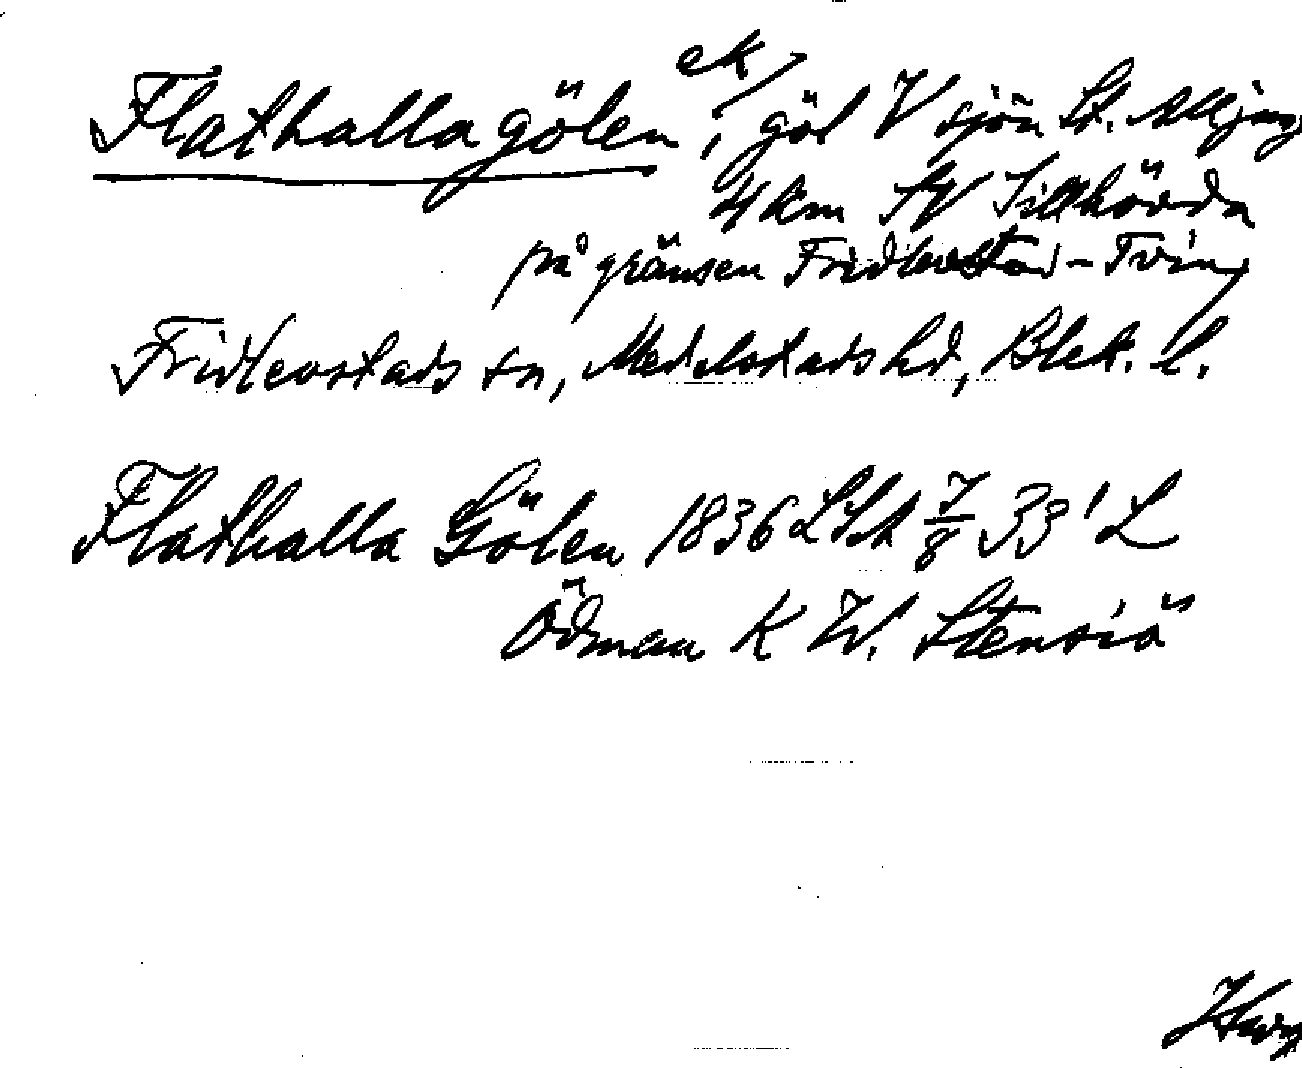 Flathallagölen ek, göl V sjön St. Alljung
4 km SV Tillhövda
på gränsen Fridlevstad - Tving
Fridlevstads sn, Medelstads hd, Blek. l.
Flathalla Gölen 1836 LSk 7/8 33' L
Ödman K W. Stensiö